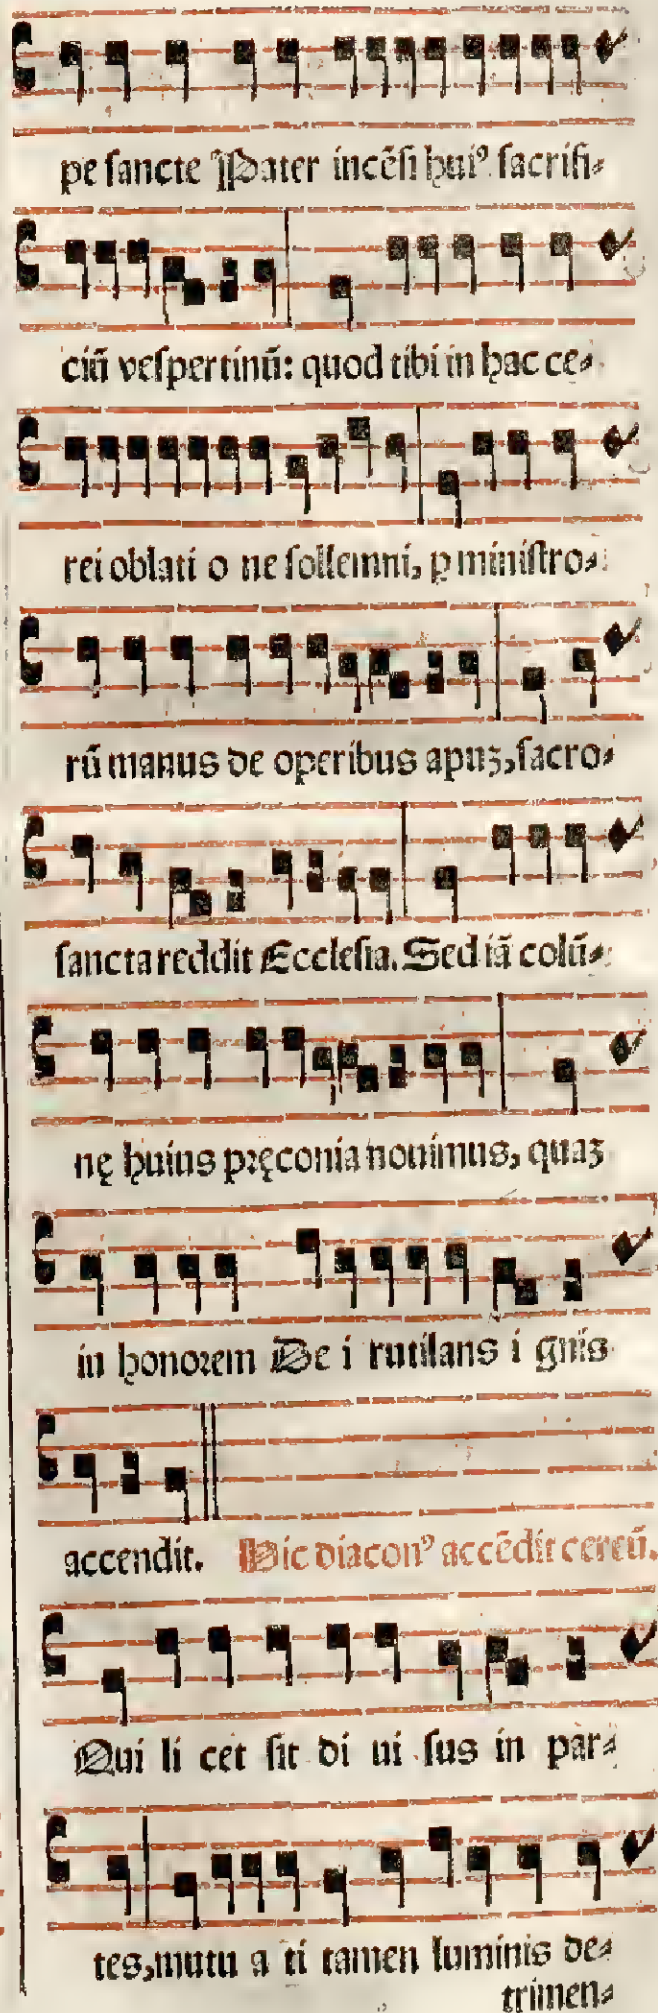 pe sancte Pater incēsi huiꝰ sacrifi⸗
ciū vespertinū: quod tibi in hac ce⸗
rei oblati o ne sollemni, ꝑ ministro⸗
rū manus de operibus apuꝫ, sacro⸗
sancta reddit Ecclesia. Sed iā colū⸗
nę huius pręconia nouimus, quaꝫ
in honorem De i rutilans i gnis
accendit. Hic diaconꝰ accēdit cereū.
Qui li cet sit di ui sus in par⸗
tes, mutu a ti tamen luminis de⸗
trimen⸗